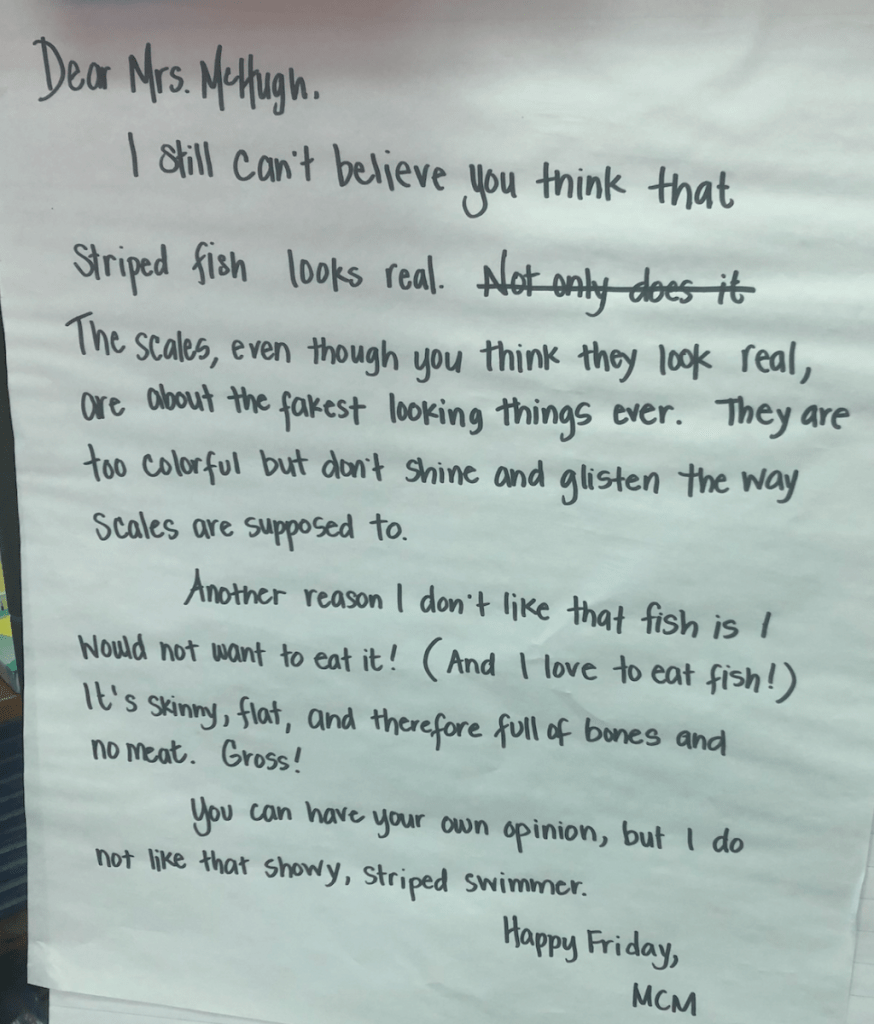 Dear Mrs. McHugh.
I still can't believe you think that
Striped fish looks real. Not only does it
The scales, even though you think they look real,
are about the fakest looking things ever. They are
too colorful but don't shine and glisten the way
Scales are supposed to.
Another reason I don't like that fish is I
Would not want to eat it! (And I love to eat fish!)
It's skinny, flat, and therefore full of bones and
no meat. Gross!
You can have your own opinion, but I do
not like that showy, striped swimmer.
Happy Friday,
MCM